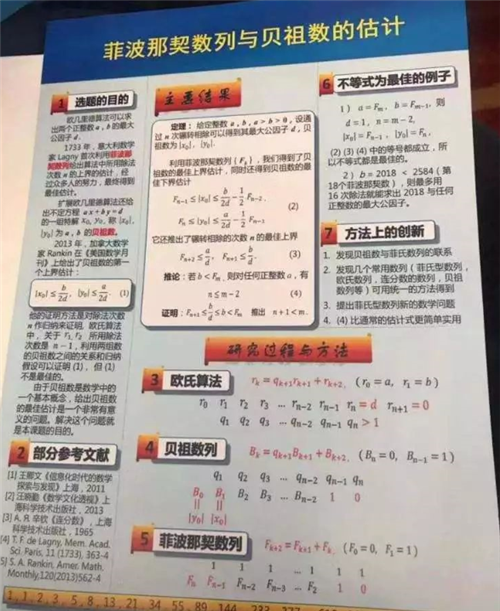 菲波那契数列与贝祖数的估计
1 选题的目的
欧几里德算法可以求
出两个正整数 a, b 的最大
公因子 d。
1733 年，意大利数学
家 Lagny 首次利用菲波那
契数列给出算法中所用除法
次数 n 的上界的估计，经
过众多人的努力，最终得到
最佳估计。
扩展欧几里德算法还给
出不定方程 ax+by=d
的一组特解 x₀, y₀, 称 |x₀|,
|y₀| 为 a, b 的贝祖数。
2013 年，加拿大数学
家 Rankin 在《美国数学月
刊》上给出了贝祖数的第一
个上界估计：
|x₀| ≤ b/2d, |y₀| ≤ a/2d (1)
他的证明方法是对除法次数
n 作归纳来证明, 欧氏算法
中，关于 r₁, r₂ 所用除法
次数是 n − 1, 利用两组数
的贝祖数之间的关系和归纳
假设可以证明 (1), 但 (1)
不是最佳的。
由于贝祖数是数学中的
一个基本概念，给出贝祖数
的最佳估计是一个非常有意
义的问题。解决这个问题就
是本课题的目的。
2 部分参考文献
[1] 王那文《信息化时代的数学
探索与发现》上海，2011
[2] 汪晓勤《数学文化透视》上
海科学技术出版社，2013
[3] A. Я. 辛钦《连分数》，上海
科学技术出版社，1965
[4] T. F. de Lagny, Mem. Acad.
Sci. Paris, 11 (1733), 363-4
[5] S. A. Rankin, Amer. Math.
Monthly, 120(2013)562-4
主要结果
定理：给定整数 a, b, a > b > 0, 设通
过 n 次辗转相除可以得到其最大公因子 d, 贝
祖数为 |x₀|, |y₀|.
利用菲波那契数列 {Fₖ}, 我们得到了贝
祖数的最佳上界估计，同时还得到贝祖数的最
佳下界估计
Fₙ₋₁ ≤ |x₀| ≤ b/2d − 1/2 Fₙ₋₂,
(2)
Fₙ ≤ |y₀| ≤ a/2d − 1/2 Fₙ₋₁.
它还推出了辗转相除的次数 n 的最佳上界
Fₙ₊₂ ≤ a/d, Fₙ₊₁ ≤ b/d. (3)
推论：若 b < Fₘ, 则对任何正整数 a, 有
n ≤ m − 2 (4)
证明：Fₙ₊₁ ≤ b/d ≤ b < Fₘ 推出 n + 1 < m.
6 不等式为最佳的例子
1） a = Fₘ, b = Fₘ₋₁, 则
d = 1, n = m − 2,
|x₀| = Fₙ₋₁, |y₀| = Fₙ.
(2) (3) (4) 中的等号都成立，所
以不等式都是最佳的。
2）b = 2018 < 2584 ( 第
18个菲波那契数 )，则最多用
16 次除法就能求出 2018 与任何
正整数的最大公因子。
7 方法上的创新
1. 发现贝祖数与菲氏数列的联系
2. 发现几个常用数列 ( 菲氏型数列，
欧氏数列，连分数的数列，贝祖
数列等 ) 可用统一的方法得到
3. 提出菲氏型数列新的数学问题
4. (4) 比通常的估计式更简单实用
研究过程与方法
3 欧氏算法 rₖ = qₖ₊₁rₖ₊₁ + rₖ₊₂, (r₀ = a, r₁ = b)
r₀ r₁ r₂ r₃ ... rₙ₋₂ rₙ₋₁ rₙ = d rₙ₊₁ = 0
q₁ q₂ q₃ ... qₙ₋₂ qₙ₋₁ qₙ > 1
4 贝祖数列 Bₖ = qₖ₊₁Bₖ₊₁ + Bₖ₊₂, (Bₙ = 0, Bₙ₋₁ = 1)
q₁ q₂ q₃ ... qₙ₋₂ qₙ₋₁ qₙ
B₀ B₁ B₂ B₃ ... Bₙ₋₂ 1 0
|| ||
|y₀| |x₀|
5 菲波那契数列 Fₖ₊₂ = Fₖ₊₁ + Fₖ, (F₀ = 0, F₁ = 1)
1 1 1 ... 1 1 1
Fₙ Fₙ₋₁ Fₙ₋₂ Fₙ₋₃ ... F₂ 1 0
1, 1, 2, 3, 5, 8, 13, 21, 34, 55, 89, 144, 233, 377